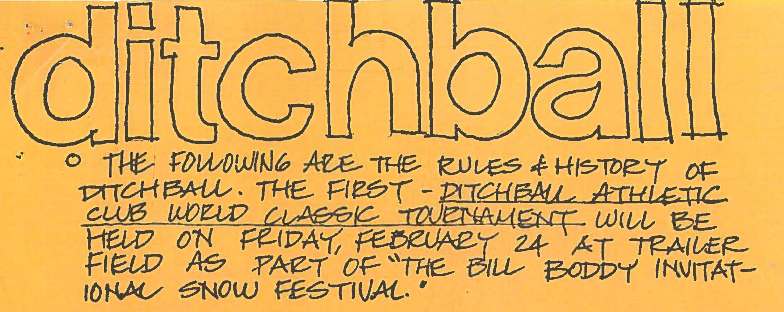 ditchball
THE FOLLOWING ARE THE RULES & HISTORY OF
DITCHBALL. THE FIRST - DITCHBALL ATHLETIC
CLUB WORLD CLASSIC TOURNAMENT WILL BE
HELD ON FRIDAY, FEBRUARY 24 AT TRAILER
FIELD AS PART OF "THE BILL BODDY INVITAT-
IONAL SNOW FESTIVAL."